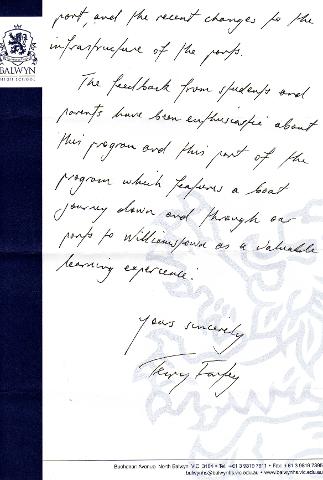 port, and the recent changes to the
infrastructure of the ports.
BALWYN
HIGH SCHOOL
The feedback from students and
parents have been enthusiastic about
this program and this part of the
program which features a boat
journey down and through our
ports to Williamstown as a valuable
learning experience.
Yours sincerely
Terry
Buchanan Avenue, North Balwyn VIC 3104 • Tel +61 3 9819 7911 • Fax + 61 3 9819 7395
balwynhs@balwynhs.vic.edu.au • www.balwynhs.vic.edu.au